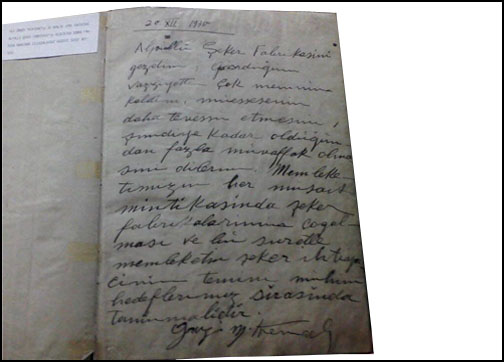 20 XII 1930
Alpullu Şeker Fabrikasini
gezdim; gördüğüm
vaziyetten çok memnun
kaldım. müessesenin
daha tevessü etmesini,
şimdiye kadar olduğun
dan fazla muvaffak olma
sını dilerim. Memleke
timizin her musait
mintikasinda şeker
fabrikalarının çoğal
ması ve bu suretle
memleketin şeker ihtiya
cinin temini mühim
hedeflerimiz sirasinda
tanınmalidir.
Gazi M. Kemal